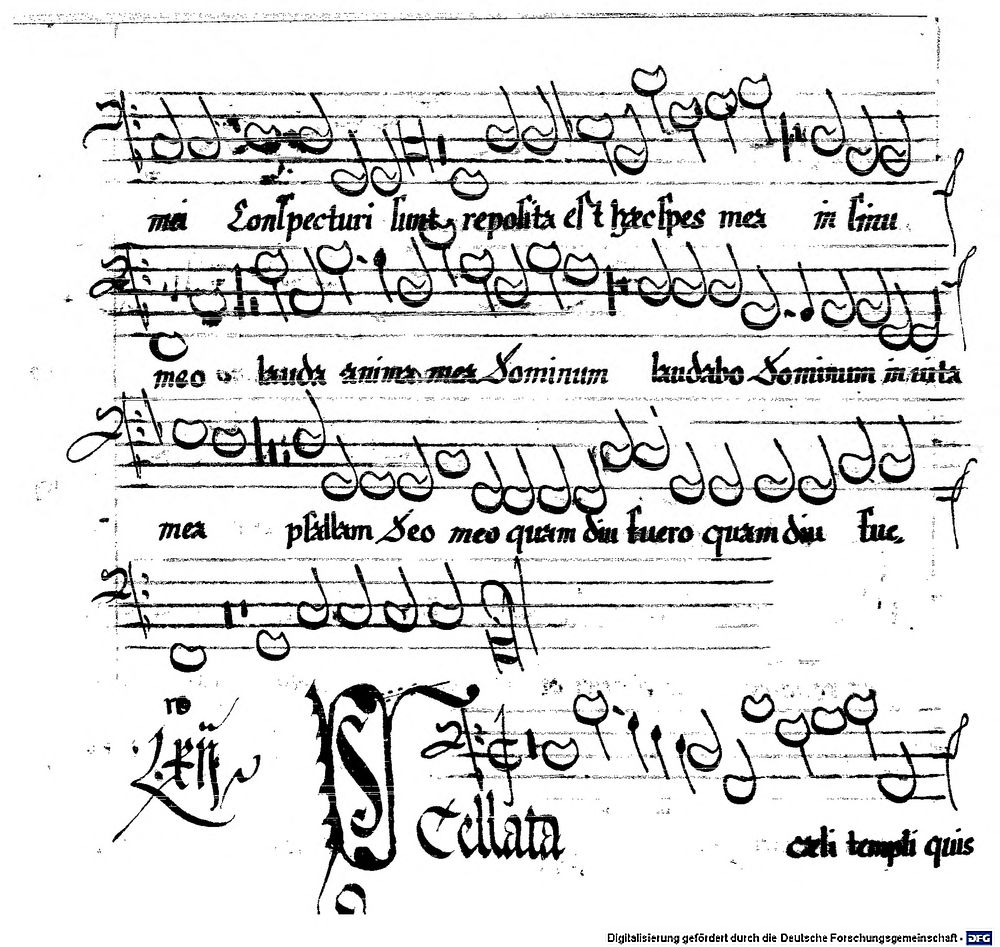 mei Conſpecturi ſunt repoſita eſt hæc ſpes mea in ſinu
meo lauda anima mea Dominum laudabo Dominum in uita
mea pſallam Deo meo quam diu fuero quam diu fue,
ro
Lxij
STellata cæli templi quis
Digitalisierung gefördert durch die Deutsche Forschungsgemeinschaft - DFG